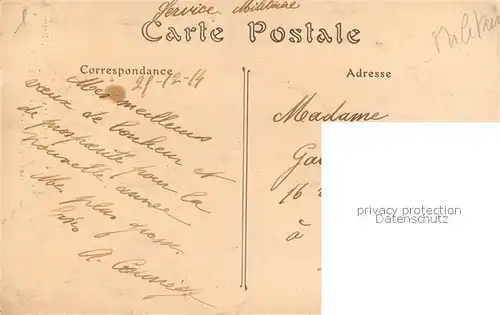 Service Militaire
Carte Postale
Correspondance
29-12-14
Mes meilleurs
vœux de bonheur et
de prospérité pour la
nouvelle année
Mes plus gros
A.
Adresse
Madame
16
à
privacy protection
Datenschutz